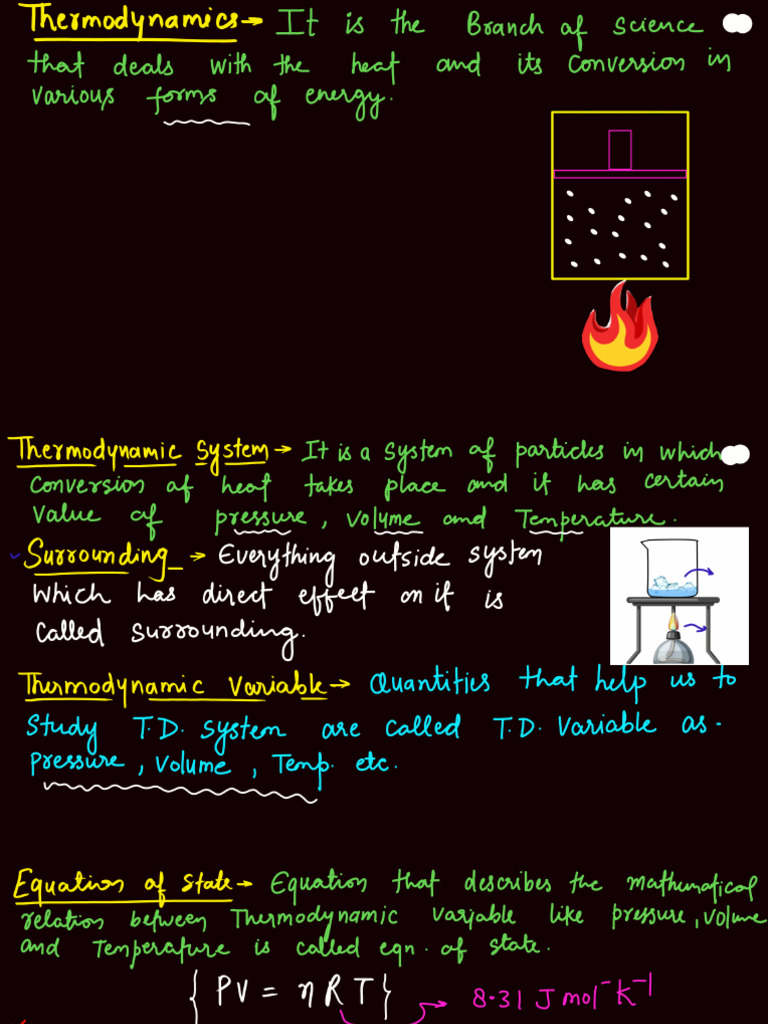 Thermodynamics → It is the Branch of science
that deals with the heat and its conversion in
various forms of energy.
Thermodynamic System → It is a system of particles in which
conversion of heat takes place and it has certain
value of pressure, volume and Temperature.
Surrounding → Everything outside system
which has direct effect on it is
called surrounding.
Thermodynamic Variable → Quantities that help us to
study T.D. system are called T.D. variable as-
pressure, volume, Temp. etc.
Equation of state → Equation that describes the mathematical
relation between Thermodynamic variable like pressure, volume
and Temperature is called eqn. of state.
{ PV = nRT } → 8.31 J mol⁻ K⁻¹